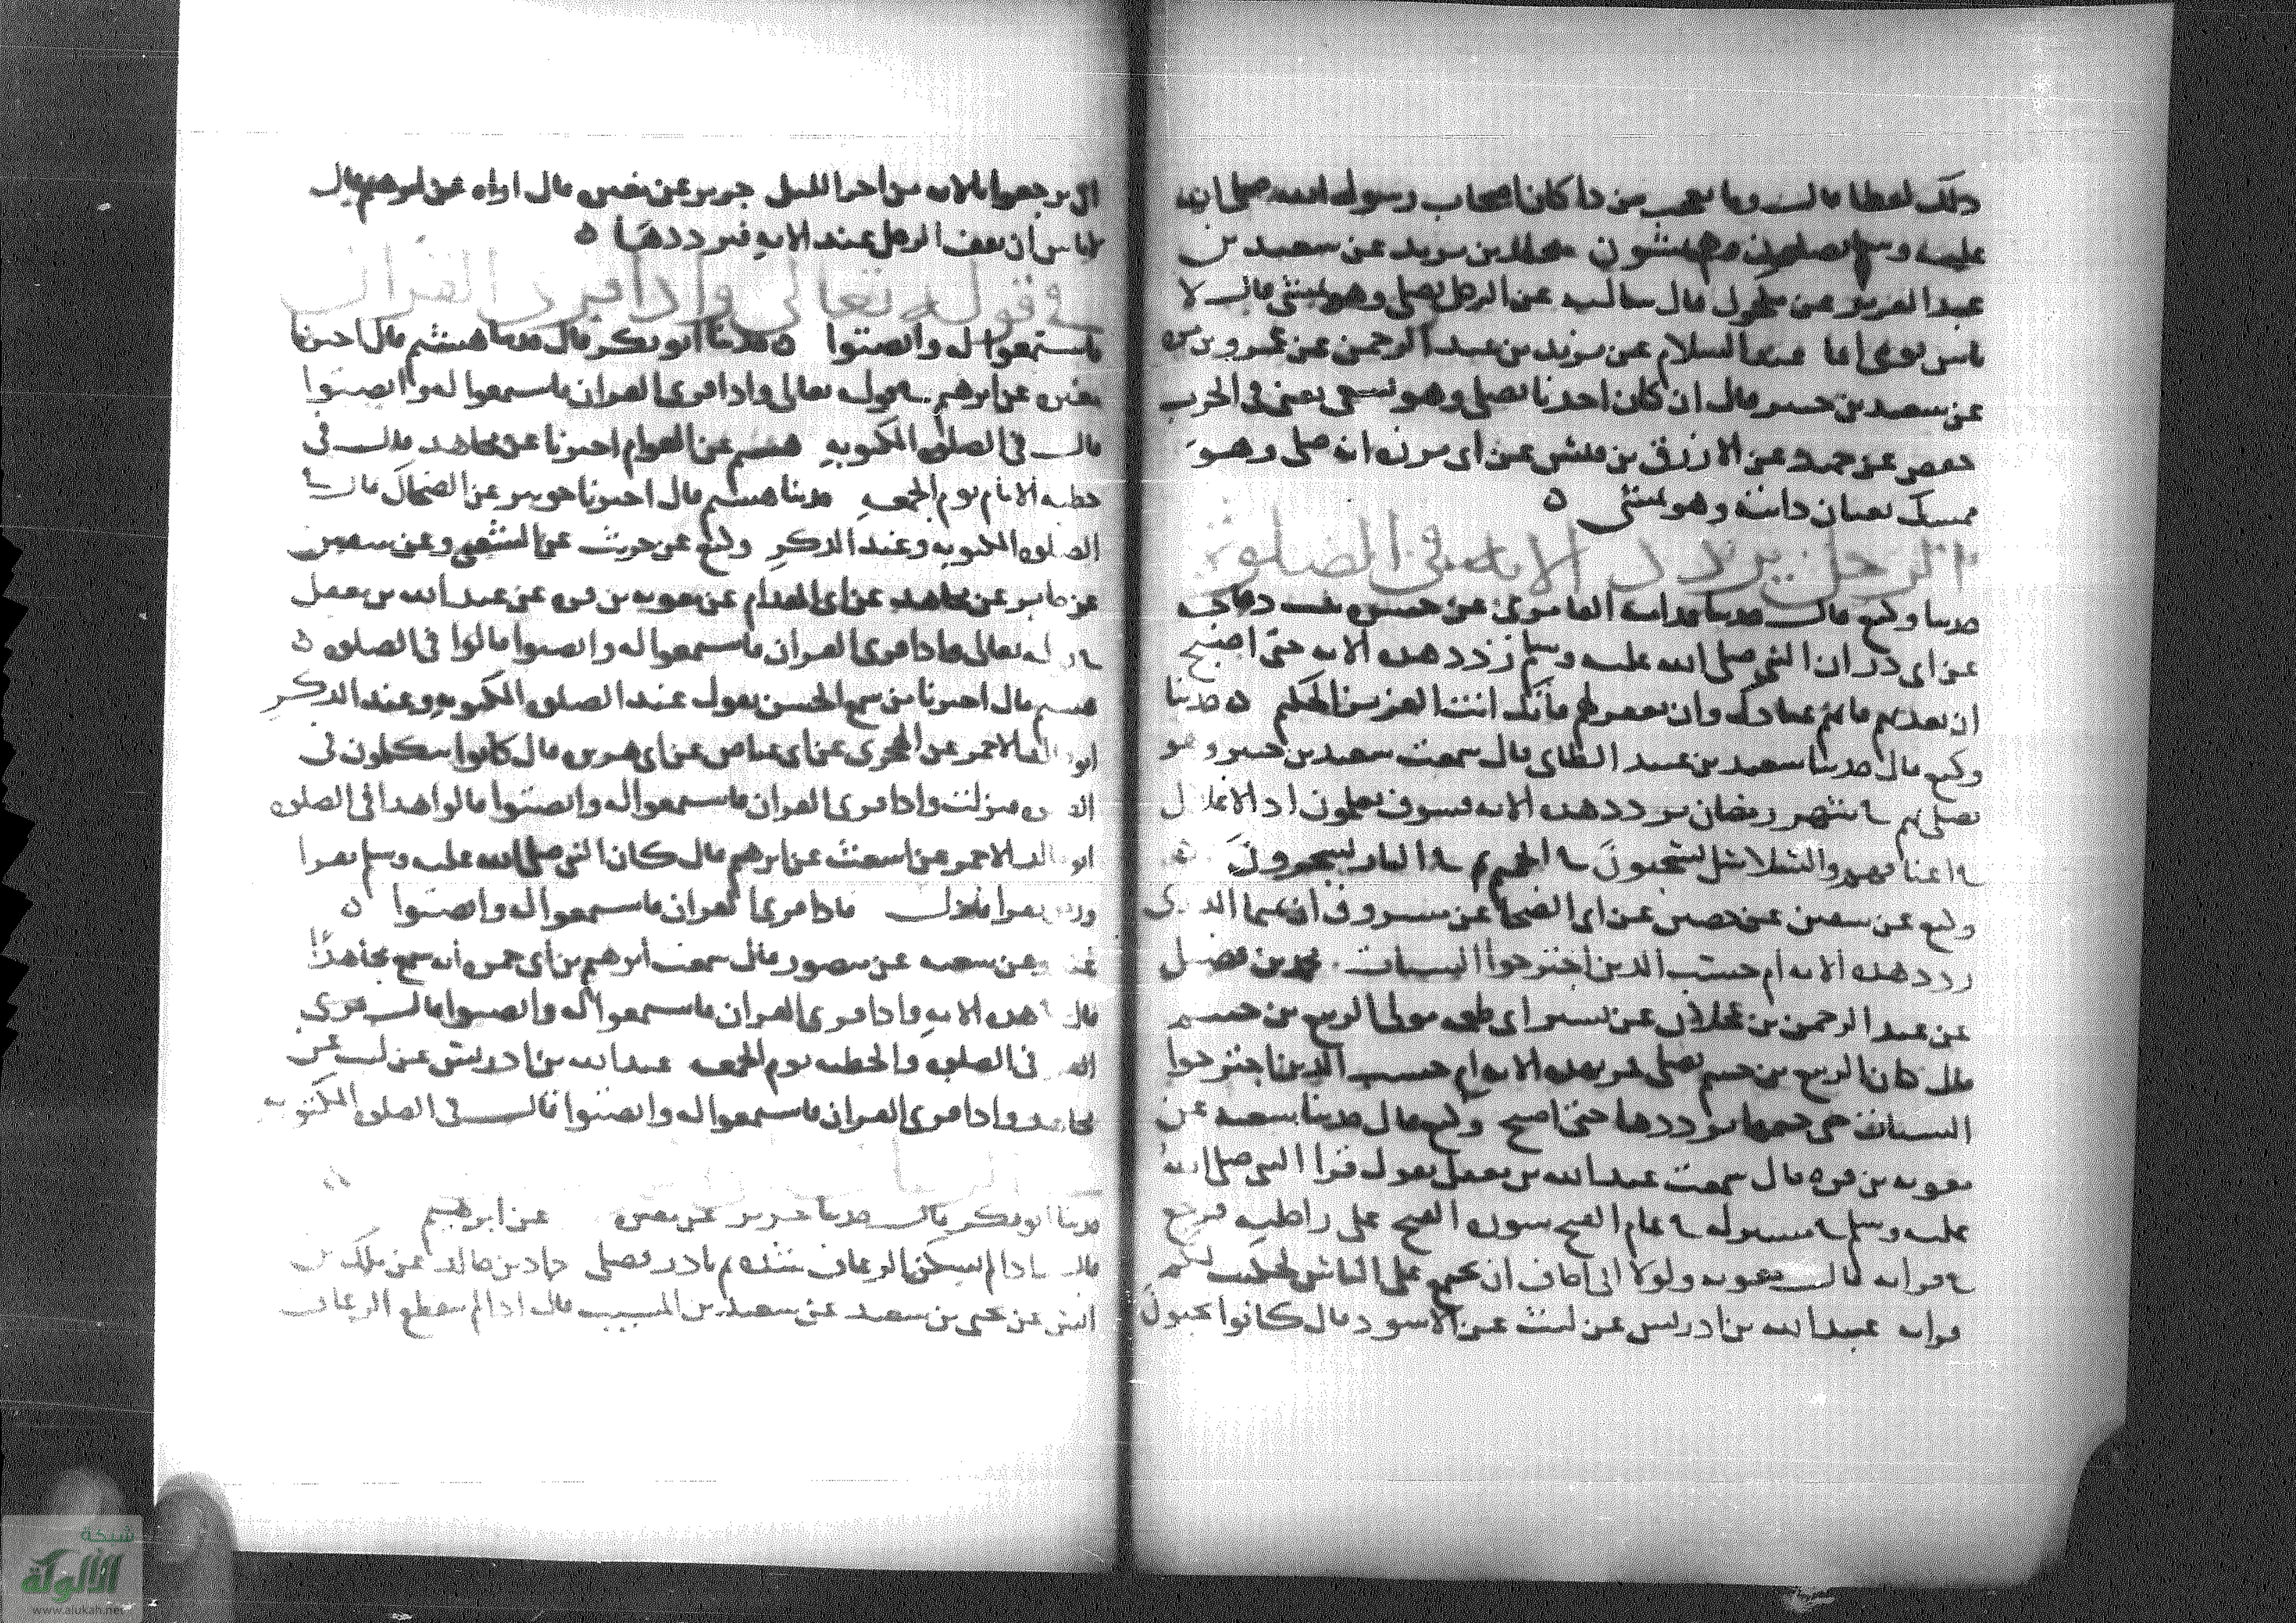 ذلك لعطا قال وما تعجب من ذا كان اصحاب رسول الله صلى الله
عليه وسلم يصلون وهم يمشون مخلد بن يزيد عن سعيد بن
عبد العزيز عن مكحول قال سالته عن الرجل يصلي وهو يمشي قال لا
باس يومي ايما عبد السلام عن يزيد بن عبد الرحمن عن عمرو بن مره
عن سعيد بن جبير قال ان كان احدنا يصلي وهو يسعى يعني في الحرب
حفص عن حميد عن الازرق بن قيس عن ابي برزه انه صلى وهو
ممسك بعنان دابته وهو يمشي ه
الرجل يردد الايه في الصلوة
حدثنا وكيع قال حدثنا قدامه العامري عن جسره بنت دجاجه
عن ابي ذر ان النبي صلى الله عليه وسلم ردد هذه الايه حتى اصبح
ان تعذبهم فانهم عبادك وان تغفر لهم فانك انت العزيز الحكيم ه حدثنا
وكيع قال حدثنا سعيد بن عبيد الطائي قال سمعت سعيد بن جبير وهو
يصلي بهم في شهر رمضان يردد هذه الايه فسوف يعلمون اذ الاغلال
في اعناقهم والسلاسل يسحبون في الحميم ثم في النار يسجرون
وكيع عن سفين عن حصين عن ابي الضحا عن مسروق ان تميما الداري
ردد هذه الايه ام حسب الذين اجترحوا السيئات محمد بن فضيل
عن عبد الرحمن بن عجلان عن نسير ابي طعمه مولى الربيع بن خثيم
قال كان الربيع بن خثيم يصلي فمر بهذه الايه ام حسب الذين اجترحوا
السيئات حتى ختمها يرددها حتى اصبح وكيع قال حدثنا شعبه عن
معويه بن قره قال سمعت عبد الله بن مغفل يقول قرا النبي صلى الله
عليه وسلم في مسير له في عام الفتح سورة الفتح على راحلته فرجع
في قراته قال معويه ولولا اني اخاف ان يجتمع علي الناس لحكيت لكم
قراته عبد الله بن ادريس عن ليث عن الاسود قال كانوا يحبون
ان يرجعوا بالايه من اخر الليل جرير عن مغيره قال اراه عن ابرهيم قال
لا باس ان يقف الرجل عند الايه فيرددها ه
في قوله تعالى واذا قرئ القران
فاستمعوا له وانصتوا ه حدثنا ابو بكر قال حدثنا هشيم قال اخبرنا
مغيره عن ابرهيم في قوله تعالى واذا قرئ القران فاستمعوا له وانصتوا
قال في الصلوه المكتوبه هشيم عن العوام اخبرنا عن مجاهد قال في
خطبه الامام يوم الجمعه حدثنا هشيم قال اخبرنا جويبر عن الضحاك قال في
الصلوه المكتوبه وعند الذكر وكيع عن حريث عن الشعبي وعن سفين
عن جابر عن مجاهد عن ابي المقدام عن معويه بن قره عن عبد الله بن مغفل
في قوله تعالى واذا قرئ القران فاستمعوا له وانصتوا قالوا في الصلوه ه
هشيم قال اخبرنا من سمع الحسن يقول عند الصلوه المكتوبه وعند الذكر
ابو خالد الاحمر عن الهجري عن ابي عياض عن ابي هريره قال كانوا يتكلمون في
الصلوه فنزلت واذا قرئ القران فاستمعوا له وانصتوا قالوا هذا في الصلوه
ابو خالد الاحمر عن اشعث عن ابرهيم قال كان النبي صلى الله عليه وسلم يقرا
ورجل يقرا فنزلت فاذا قرئ القران فاستمعوا له وانصتوا ه
غندر عن شعبه عن منصور قال سمعت ابرهيم بن ابي حمزه انه سمع مجاهدا
قال في هذه الايه واذا قرئ القران فاستمعوا له وانصتوا قال
في الصلوه والخطبه يوم الجمعه عبد الله بن ادريس عن ليث عن
مجاهد واذا قرئ القران فاستمعوا له وانصتوا قال في الصلوه المكتوبه
حدثنا ابو بكر قال حدثنا جرير عن مغيره عن ابرهيم
قال اذا لم يسكن الرعاف شده ثم بادر فصلى حماد بن خالد عن ملك بن
انس عن يحيى بن سعيد عن سعيد بن المسيب قال اذا لم ينقطع الرعاف
شبكة
الألوكة
www.alukah.net